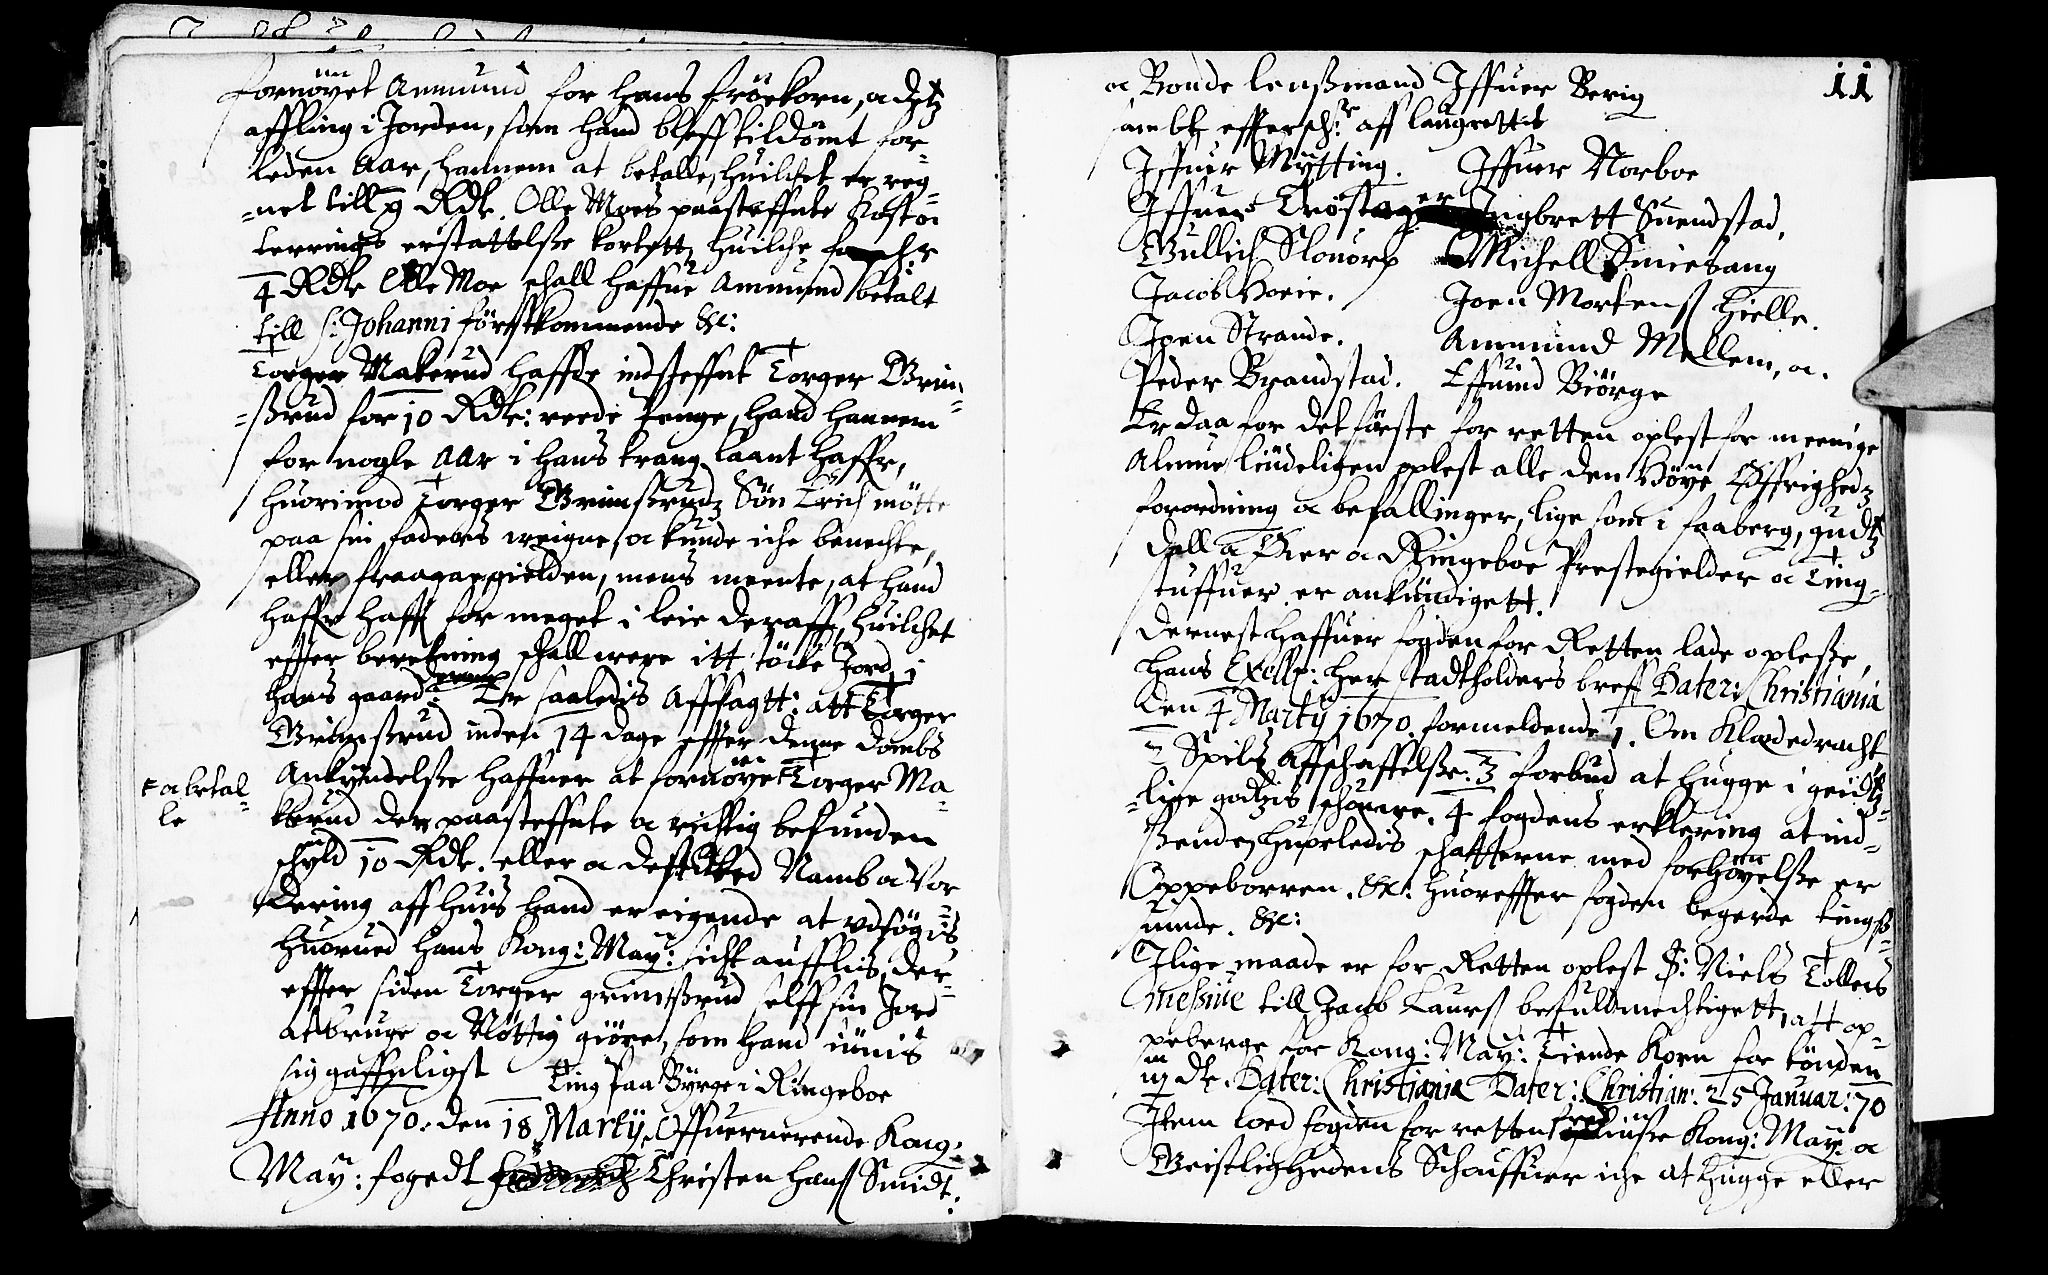 fornöyet Ammund for hans fröekorn, a detz
affling i Jorden, som hand bleff tildömt for-
leden Aar, hannem at betalle, huilchet er reg-
=net till 9 Rdr. Olle Moes paasteffnte Kost oc
terrings erstattelsse kortett, huilche
4 Rdr Olle Moe schall haffue Ammund betalt
till S: Johanni förstkommende &c:
Torger Makerud haffde indsteffnt Torger Grim-
=ßrud for 10 Rdr: rede penge, hand hannem
for nogle Aar i hans trang laant haffr,
huorimod Torger Grimßrudz Sön Erich mötte
paa sin faders weigne, oc kunde iche benechte,
eller fraagaa gielden, mens meente, at hand
haffr hafft for meget i leie deraff, huilchet
effter beretning schall were itt støche Jord i
hans gaard. Er saaledis Affsagtt: att Torger
Grimßrud inden 14 dage effter denne dombs
Ankyndelsse haffuer at fornöye Torger Ma-
kerud den paasteffnte oc richtig befunden
schyld 10 Rdr. eller a Namb a Vor
dering aff huis hand er eigende at vdsögis
huorued hans Kong: May: sicht deraff-
effter siden Torger Grimßrud selff sin Jord
at bruge oc Nöttig giöre, som hand
sig gaffnligst
Ting paa Byrge i Ringeboe
Anno 1670. den 18 Marty, Offuerwerende Kong:
May: fogedt Christen Hanß Smidt.
+ a betal-
le
11
oc Bonde lenßmand Iffuer Berig
sambt effterschr: aff laugrettit
Iffuer Mytting. Iffuer Norboe
Iffuer Tröstager Ingbrett Suendstad,
Gullich Slouorp Michell Smiebang
Jacob Hoeie. Joen Mortenß Hielle.
Joen Strande. Ammund Mellem, oc.
Peder Brandstad. Effuind Biörge
Er daa for det förste for retten oplest for meenige
Almue liudeligen oplest alle den Höye Öffrighedz
forordning oc befallinger, lige som i faaberg, gudtz
dall Öier oc Ringeboe Prestegielder oc Ting-
stuffuer er ankundigett.
Dernest haffuer fogden for Retten lade oplesse,
Hans Excell: Her Stadtholders breff Dater: Christiania
den 4 Marty 1670. formeldende 1. Om Klædedracht
2 Spils Affschaffelsse. 3 forbud at hugge i geist-
=lige godzis schouere. 4 fogdens erklering at ind-
ßende, huorledis schatterne med forhöyelsse er
Oppeborren. &c: huoreffter fogden begerde tingß-
uinde. &c:
Ilige maade er for Retten oplest S: Niels Tollers
messiue till Jacob Laurß befuldmechtigett, att op-
peberge for Kong: May: Tiende Korn for tönden
dr. Dater: Christiania Dater: Christian: 25 Januar: 70
Item loed fogden for retten Kong: May: oc
Geistlighedens Schouffuer iche at hugge eller